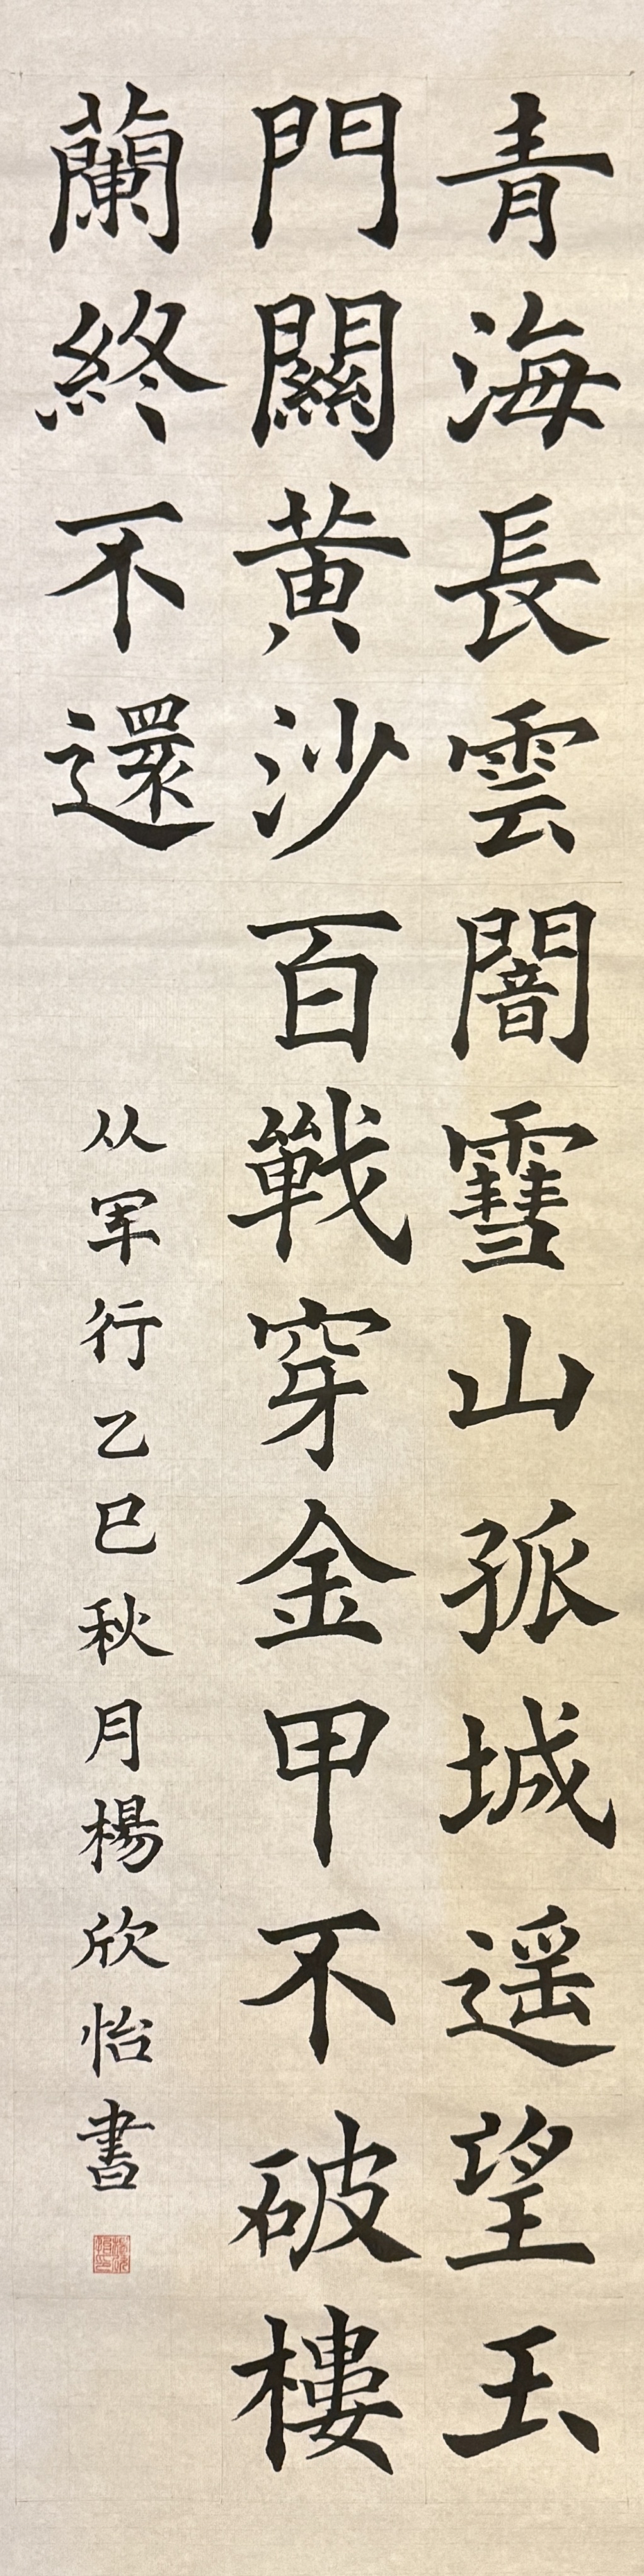 青海長雲闇雪山孤城遥望玉
門關黃沙百戰穿金甲不破樓
蘭終不還
从军行乙巳秋月楊欣怡書